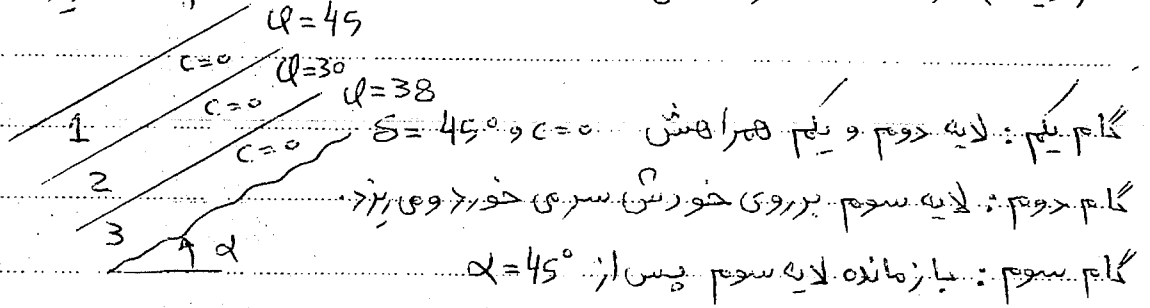 φ=45
c=0
φ=30
c=0
φ=38
1
c=0
δ=45° و c=0
گام یکم: لایه دوم و یکم همراهش
2
گام دوم: لایه سوم بر روی خودش سر می خورد و می ریزد.
3
α
گام سوم: بازمانده لایه سوم پس از α=45°